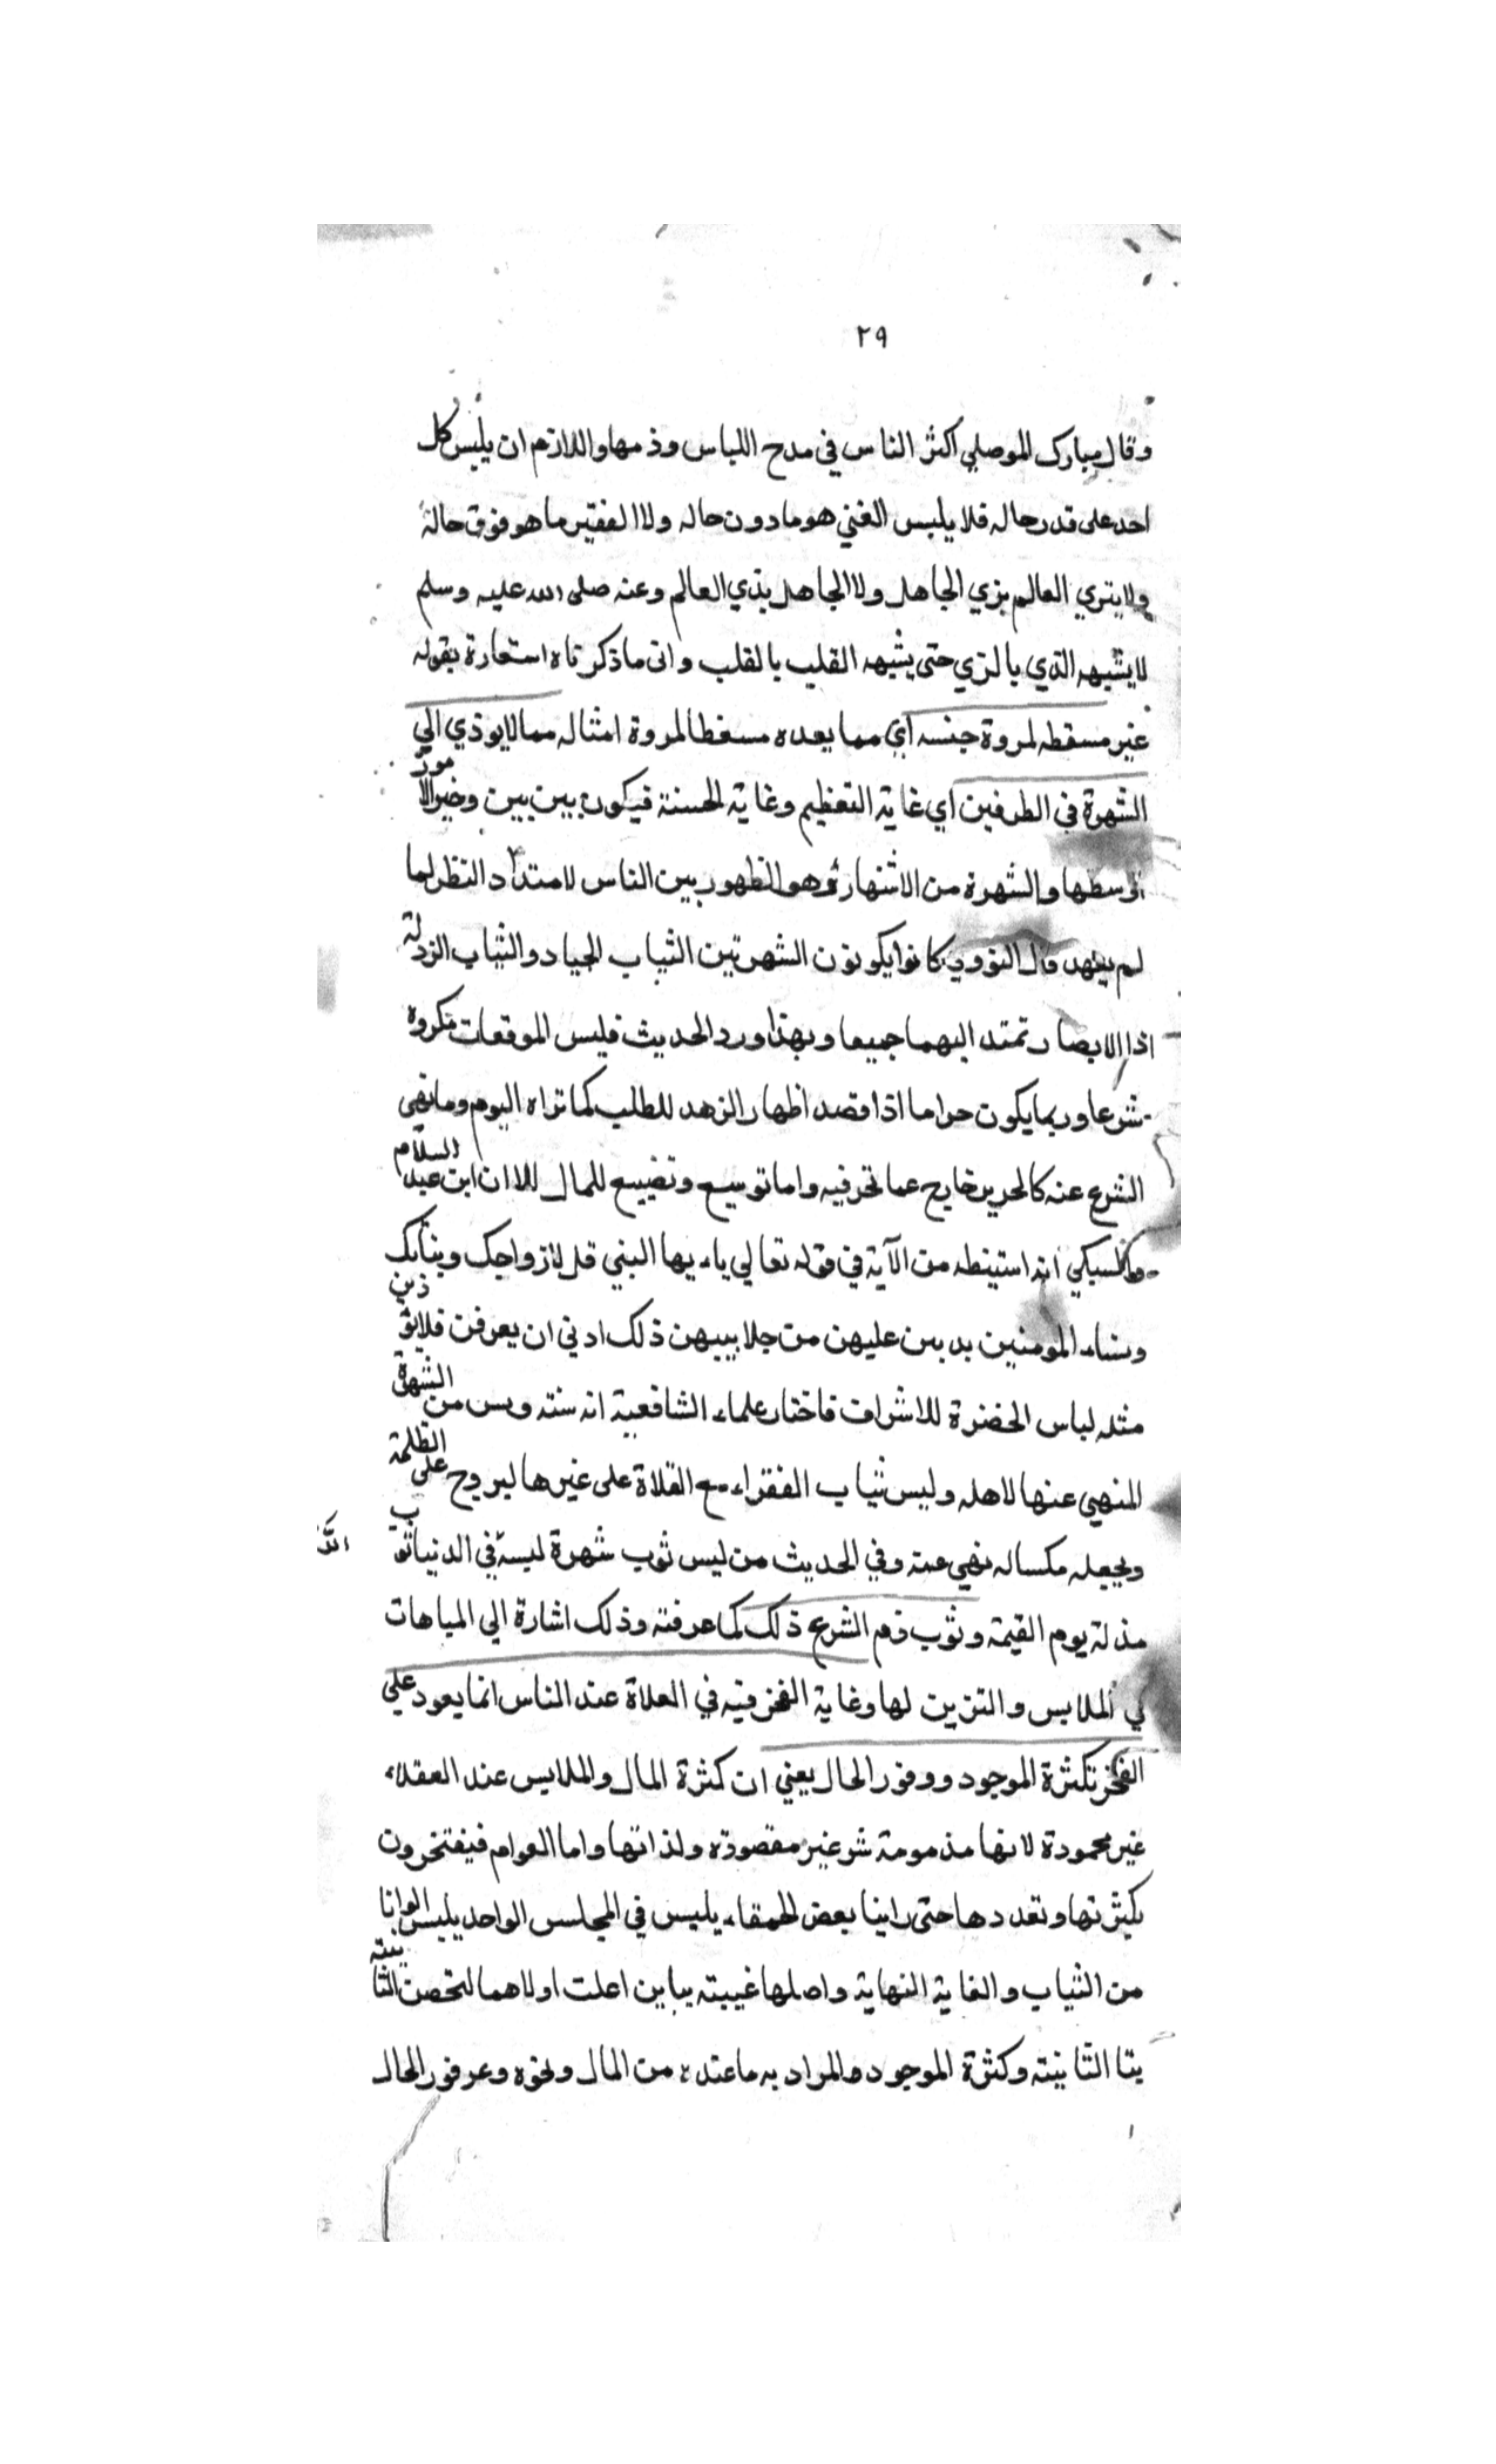 ٢٩
وقال مبارك الموصلي اكثر الناس في مدح اللباس وذمها واللازم ان يلبس كل
احد على قدر حاله فلا يلبس الغني هو مادون حاله ولا الفقير ما هو فوق حالة
ولا يتزي العالم بزي الجاهل ولا الجاهل بذي العالم وعنه صلى الله عليه وسلم
لا يشبه الذي بالزي حتى يشبه القلب بالقلب واتى ما ذكرناه استعارة بقوله
غير مسقطه لمروة جنسه اي مما يعده مسقطا لمروة امثاله مما لا يوذي الي
الشهرة في الطرفين اي غاية التعظيم وغاية الحسنة فيكون بين بين وخير الامور
اوسطها والشهرة من الاشتهار وهو الظهور بين الناس لامتداد النظر لما
لم يعهد قال النووي كانوا يكونون الشهرتين الثياب الجياد والثياب الرذلة
اذ الابصار تمتد اليهما جميعا وبهذا ورد الحديث فلبس الموقعات مكروه
شرعا وربما يكون حراما اذا قصد اظهار الزهد للطلب كما تراه اليوم وما نهى
الشرع عنه كالحرير خارج عما نحر فيه واما توسيع وتضييع للمال الا ان ابن عبد السلام
والسبكي انه استنبطه من الآية في قوله تعالي ياءيها النبي قل لازواجك وبناتك
ونساء المومنين يدنين عليهن من جلابيبهن ذلك ادني ان يعرفن فلا يؤذين
مثله لباس الخضرة للاشراف فاختار علماء الشافعية انه سنته وبس من الشهرة
المنهي عنها لاهله ولبس ثياب الفقراء مع القلاة على غيرها ليروح على الظلمة
ويجعله مكساله نهي عنه وفي الحديث من لبس ثوب شهرة لبسه في الدنيا ثوب
مذلة يوم القيمة وثوب ذم الشرع ذلك كما عرفته وذلك اشارة الي المباهات
في الملابس والتزين لها وغاية الفخر فيه في العلاة عند الناس انما يعود علي
الفخر بكثرة الموجود ووفور الحال يعني ان كثرة المال والملابس عند العقلاء
غير محمودة لانها مذمومة شرعا غير مقصودة ولذاتها واما العوام فيفتخرون
بكثرتها وتعددها حتى راينا بعض الحمقاء يلبس في المجلس الواحد يلبس الوانا
من الثياب والغاية النهاية واصلها غيبته بياين اعلت اولاهما لتحصن الثانية
يتا الثانيته وكثرة الموجود والمراد به ما عنده من المال ونحوه وعرفور الحال